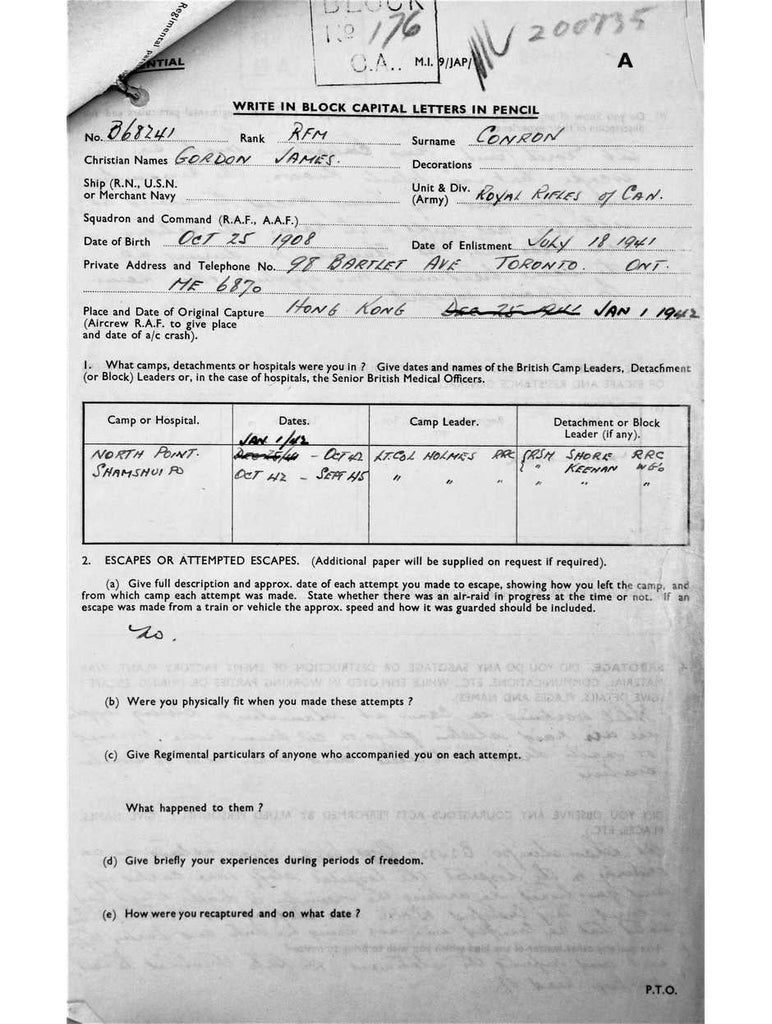 Regimental
BLOCK
No 176
C.A..
M.I. 9/JAP/
200735
A
ENTIAL
WRITE IN BLOCK CAPITAL LETTERS IN PENCIL
No. B68241 Rank RFM Surname CONRON
Christian Names GORDON JAMES. Decorations
Ship (R.N., U.S.N. or Merchant Navy
Unit & Div. (Army) ROYAL RIFLES of CAN.
Squadron and Command (R.A.F., A.A.F.)
Date of Birth OCT 25 1908 Date of Enlistment JULY 18 1941
Private Address and Telephone No. 98 BARTLET AVE TORONTO. ONT.
ME 6870
Place and Date of Original Capture HONG KONG DEC 25 JAN 1 1942
(Aircrew R.A.F. to give place
and date of a/c crash).
1. What camps, detachments or hospitals were you in ? Give dates and names of the British Camp Leaders, Detachment
(or Block) Leaders or, in the case of hospitals, the Senior British Medical Officers.
Camp or Hospital. Dates. Camp Leader. Detachment or Block
Leader (if any).
JAN 1/42
NORTH POINT. DEC 25/41 - OCT 42 LT. COL HOLMES RRC RSM SHORE RRC
" KEENAN WG
SHAMSHUI PO OCT 42 - SEPT 45 " " " " " "
2. ESCAPES OR ATTEMPTED ESCAPES. (Additional paper will be supplied on request if required).
(a) Give full description and approx. date of each attempt you made to escape, showing how you left the camp, and
from which camp each attempt was made. State whether there was an air-raid in progress at the time or not. If an
escape was made from a train or vehicle the approx. speed and how it was guarded should be included.
No.
(b) Were you physically fit when you made these attempts ?
(c) Give Regimental particulars of anyone who accompanied you on each attempt.
What happened to them ?
(d) Give briefly your experiences during periods of freedom.
(e) How were you recaptured and on what date ?
P.T.O.